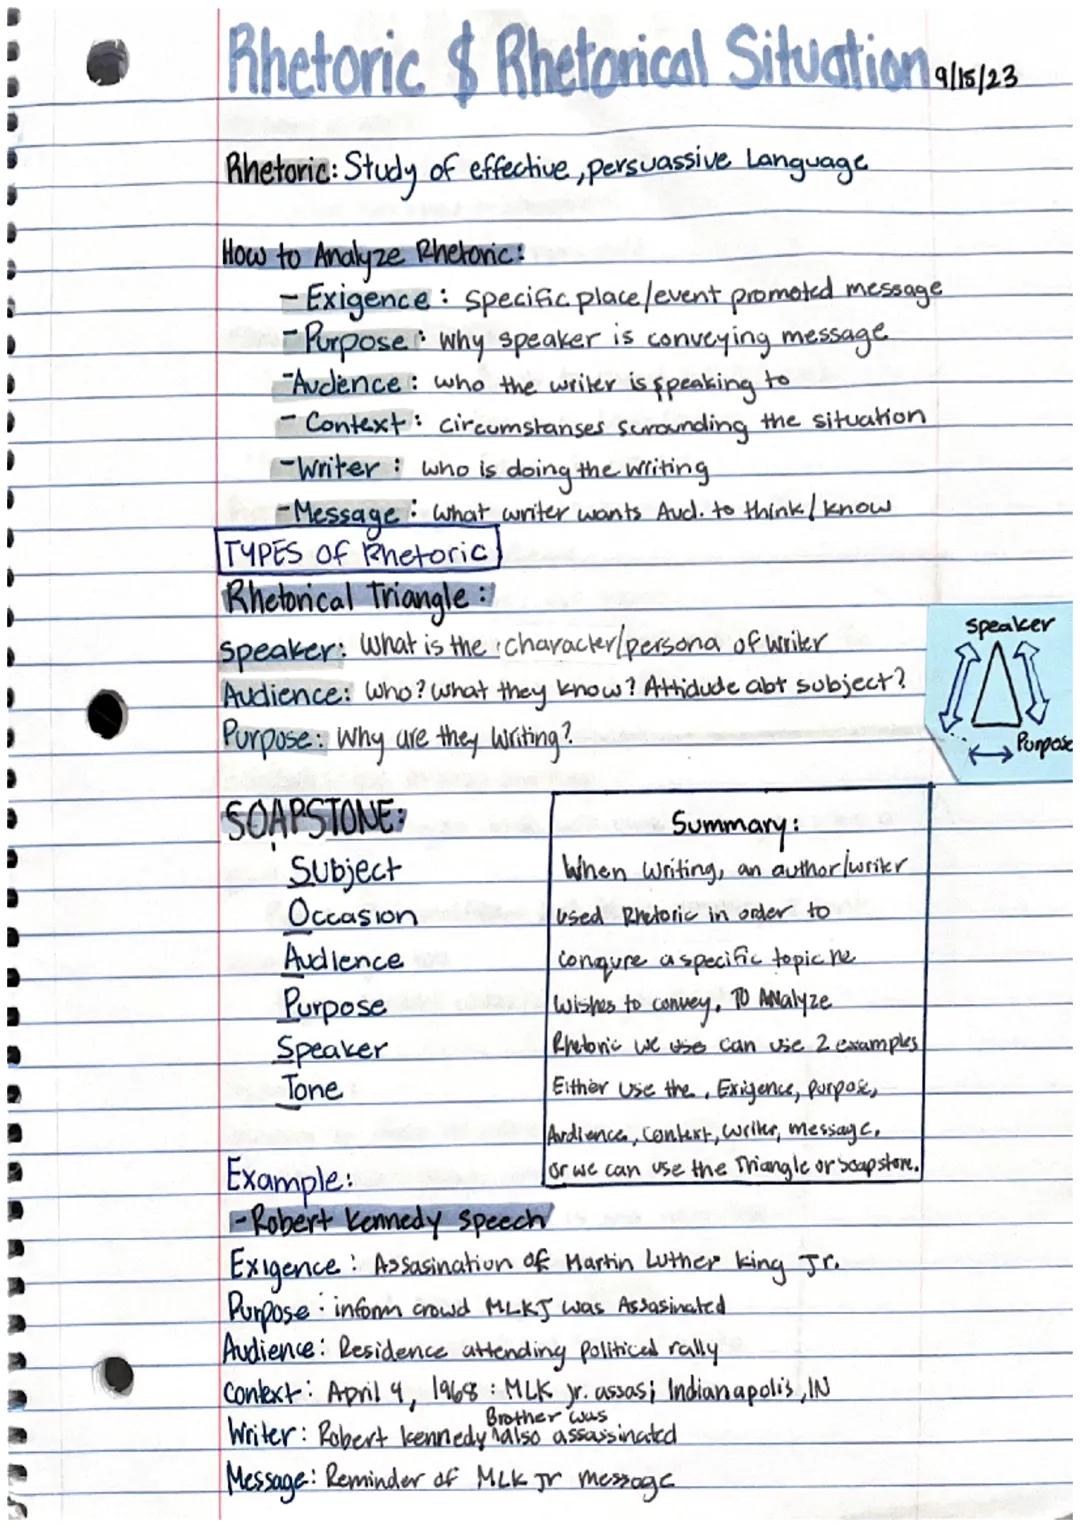 Rhetoric $ Rhetorical Situation 9/15/23
Rhetoric: Study of effective, persuassive Language
How to Analyze Rhetoric:
- Exigence: specific place/event promoted message
- Purpose: why speaker is conveying message
- Audience: who the writer is speaking to
- Context: circumstanses surounding the situation
- Writer: who is doing the writing
- Message: what writer wants Aud. to think/know
TYPES OF Rhetoric
Rhetorical Triangle:
Speaker: What is the character/persona of writer
Audience: Who? What they know? Attidude abt subject?
Purpose: Why are they writing?
speaker
Purpose
SOAPSTONE:
Subject
Occasion
Audience
Purpose
Speaker
Tone
Summary:
When writing, an author/writer
used Rhetoric in order to
conqure a specific topic he
wishes to convey. TO ANalyze
Rhetoric we use can use 2 examples
Either use the, Exigence, purpose,
Audience, context, writer, message,
or we can use the Triangle or soapstone.
Example:
- Robert Kennedy speech
Exigence: Assasination of Martin Luther King Jr.
Purpose: inform crowd MLKJ was Assasinated
Audience: Residence attending political rally
Context: April 4, 1968: MLK jr. assasi Indianapolis, IN
Writer: Robert Kennedy Brother was also assassinated
Message: Reminder of MLK Jr message